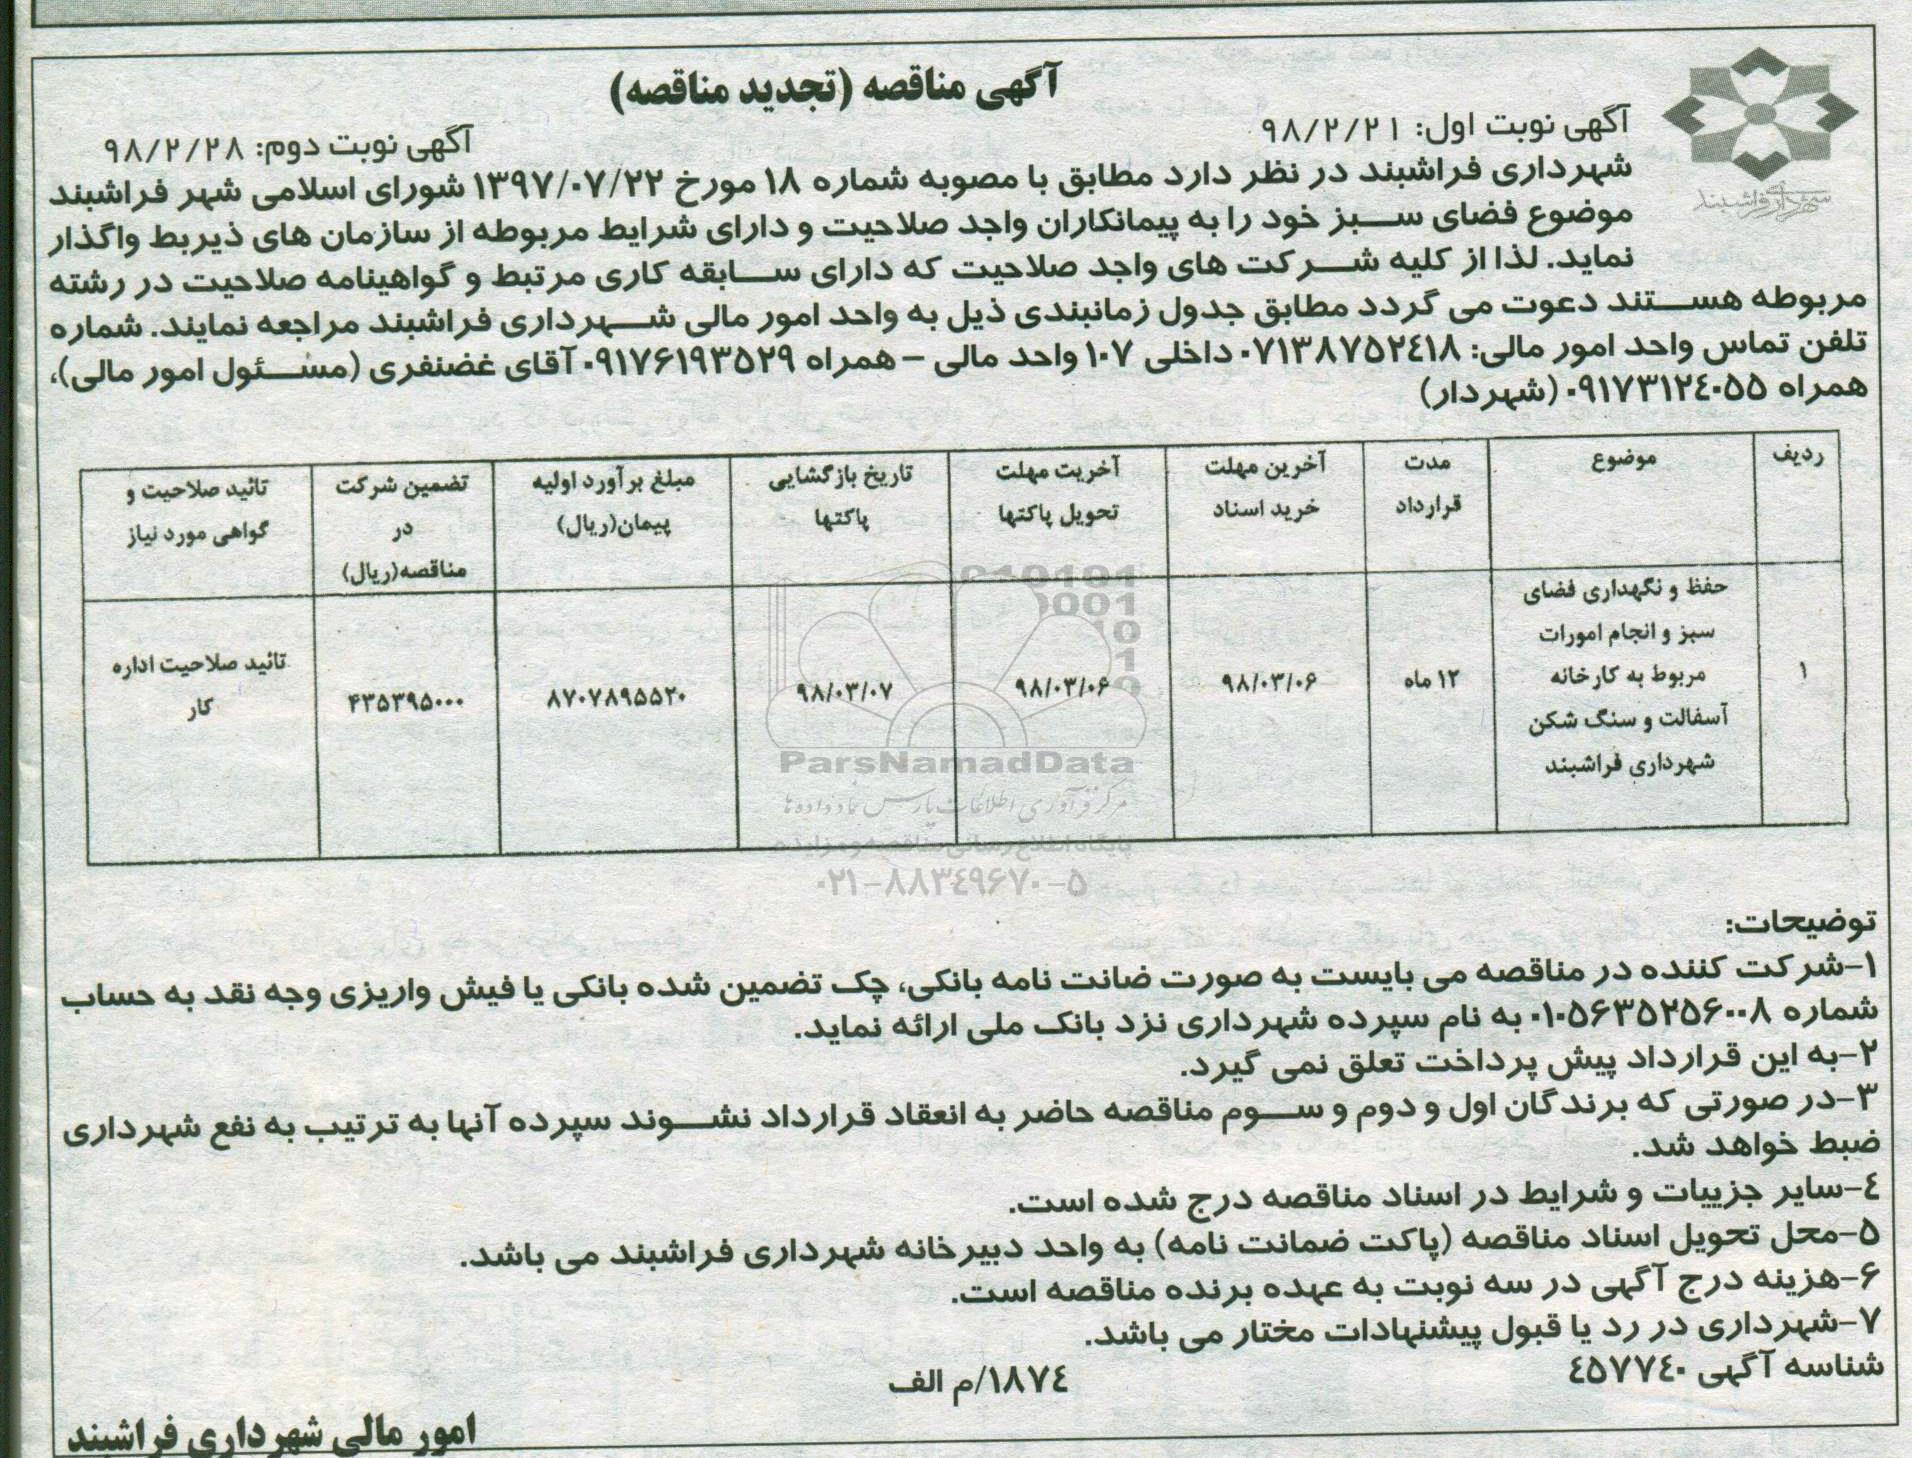 آگهی مناقصه (تجدید مناقصه)
آگهی نوبت اول: ۹۸/۲/۲۱
آگهی نوبت دوم: ۹۸/۲/۲۸
شهرداری فراشبند
شهرداری فراشبند در نظر دارد مطابق با مصوبه شماره ۱۸ مورخ ۱۳۹۷/۰۷/۲۲ شورای اسلامی شهر فراشبند
موضوع فضای سبز خود را به پیمانکاران واجد صلاحیت و دارای شرایط مربوطه از سازمان های ذیربط واگذار
نماید. لذا از کلیه شرکت های واجد صلاحیت که دارای سابقه کاری مرتبط و گواهینامه صلاحیت در رشته
مربوطه هستند دعوت می گردد مطابق جدول زمانبندی ذیل به واحد امور مالی شهرداری فراشبند مراجعه نمایند. شماره
تلفن تماس واحد امور مالی: ۰۷۱۳۸۷۵۲٤۱۸ داخلی ۱۰۷ واحد مالی – همراه ۰۹۱۷۶۱۹۳۵۲۹ آقای غضنفری (مسئول امور مالی)،
همراه ۰۹۱۷۳۱۲٤۰۵۵ (شهردار)
ردیف
موضوع
مدت
قرارداد
آخرین مهلت
خرید اسناد
آخریت مهلت
تحویل پاکتها
تاریخ بازگشایی
پاکتها
مبلغ برآورد اولیه
پیمان(ریال)
تضمین شرکت
در
مناقصه(ریال)
تائید صلاحیت و
گواهی مورد نیاز
۱
حفظ و نگهداری فضای
سبز و انجام امورات
مربوط به کارخانه
آسفالت و سنگ شکن
شهرداری فراشبند
۱۲ ماه
۹۸/۰۳/۰۶
۹۸/۰۳/۰۶
۹۸/۰۳/۰۷
۸۷۰۷۸۹۵۵۲۰
۴۳۵۳۹۵۰۰۰
تائید صلاحیت اداره
کار
ParsNamadData
مرکز فرآوری اطلاعات پارس نماد داده ها
پایگاه اطلاع رسانی مناقصه و مزایده
۰۲۱-۸۸۳٤۹۶۷۰-۵
توضیحات:
۱-شرکت کننده در مناقصه می بایست به صورت ضانت نامه بانکی، چک تضمین شده بانکی یا فیش واریزی وجه نقد به حساب
شماره ۰۱۰۵۶۳۵۲۵۶۰۰۸ به نام سپرده شهرداری نزد بانک ملی ارائه نماید.
۲-به این قرارداد پیش پرداخت تعلق نمی گیرد.
۳-در صورتی که برندگان اول و دوم و سوم مناقصه حاضر به انعقاد قرارداد نشوند سپرده آنها به ترتیب به نفع شهرداری
ضبط خواهد شد.
٤-سایر جزییات و شرایط در اسناد مناقصه درج شده است.
۵-محل تحویل اسناد مناقصه (پاکت ضمانت نامه) به واحد دبیرخانه شهرداری فراشبند می باشد.
۶-هزینه درج آگهی در سه نوبت به عهده برنده مناقصه است.
۷-شهرداری در رد یا قبول پیشنهادات مختار می باشد.
شناسه آگهی ٤۵۷۷٤۰
۱۸۷٤/م الف
امور مالی شهرداری فراشبند